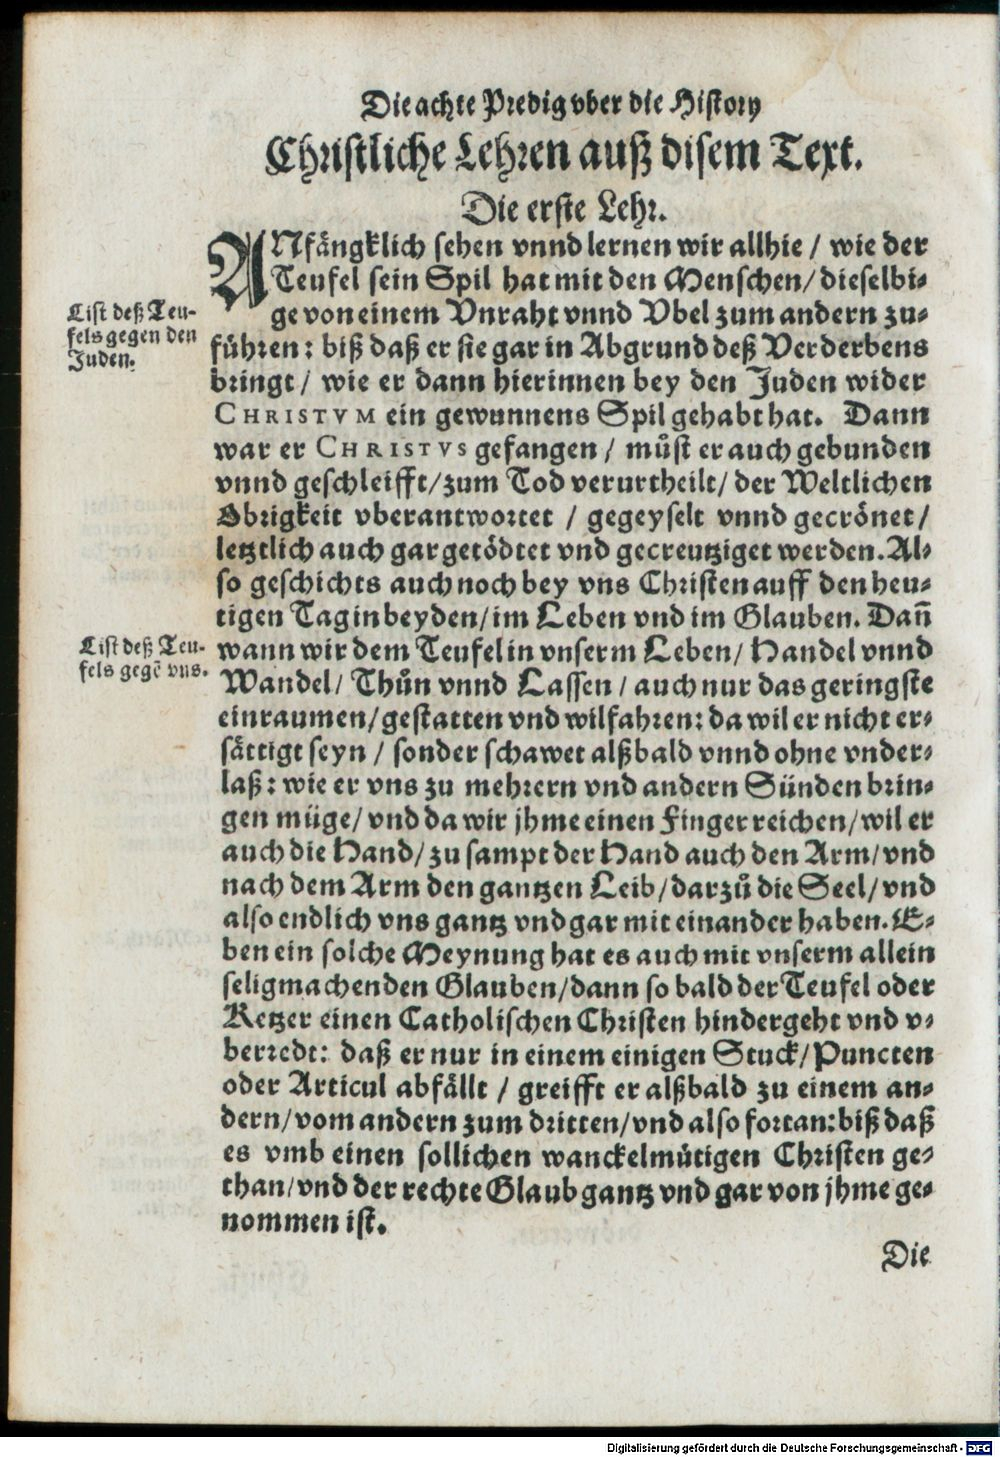 Die achte Predig vber die History
Christliche Lehren auß disem Text.
Die erste Lehr.
ANfängklich sehen vnnd lernen wir allhie / wie der
Teufel sein Spil hat mit den Menschen / dieselbi-
ge von einem Vnraht vnnd Vbel zum andern zu-
führen: biß daß er sie gar in Abgrund deß Verderbens
bringt / wie er dann hierinnen bey den Juden wider
CHRISTVM ein gewunnens Spil gehabt hat. Dann
war er CHRISTVS gefangen / můst er auch gebunden
vnnd geschleifft / zum Tod verurtheilt / der Weltlichen
Obrigkeit vberantwortet / gegeyselt vnnd gecrönet /
letztlich auch gar getödtet vnd gecreutziget werden. Al-
so geschichts auch noch bey vns Christen auff den heu-
tigen Tag in beyden / im Leben vnd im Glauben. Dañ
wann wir dem Teufel in vnserm Leben / Handel vnnd
Wandel / Thůn vnnd Lassen / auch nur das geringste
einraumen / gestatten vnd wilfahren: da wil er nicht er-
sättigt seyn / sonder schawet alßbald vnnd ohne vnder-
laß: wie er vns zu mehrern vnd andern Sünden brin-
gen müge / vnd da wir jhme einen Finger reichen / wil er
auch die Hand / zu sampt der Hand auch den Arm / vnd
nach dem Arm den gantzen Leib / darzů die Seel / vnd
also endlich vns gantz vnd gar mit einander haben. E-
ben ein solche Meynung hat es auch mit vnserm allein
seligmachenden Glauben / dann so bald der Teufel oder
Ketzer einen Catholischen Christen hindergeht vnd v-
berredt: daß er nur in einem einigen Stuck / Puncten
oder Articul abfällt / greifft er alßbald zu einem an-
dern / vom andern zum dritten / vnd also fortan: biß daß
es vmb einen sollichen wanckelmütigen Christen ge-
than / vnd der rechte Glaub gantz vnd gar von jhme ge-
nommen ist.
Die
List deß Teu-
fels gegen den
Juden.
List deß Teu-
fels gegē vns.
Digitalisierung gefördert durch die Deutsche Forschungsgemeinschaft - DFG